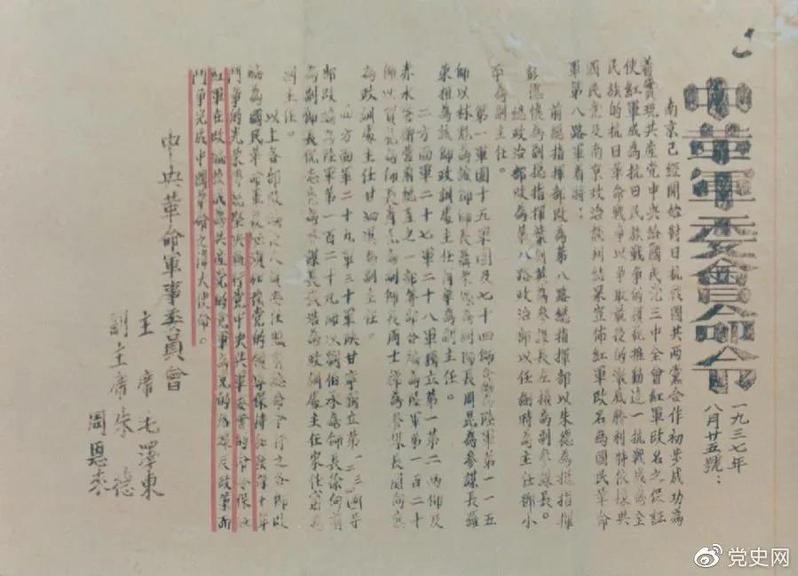 中華軍委會命令
一九三七年
八月廿五號：
南京已經開始對日抗戰國共兩黨合作初步成功為
着實現共產黨中央給國民黨三中全會紅軍改名之保証
使紅軍成為抗日民族戰爭的模範推動這一抗戰成為全
民族的抗日革命戰爭以爭取最後的澈底勝利特依據共
國民黨及南京政治談判結果宣佈紅軍改名為國民革命
軍第八路軍着將：
前總指揮部改為第八路總指揮部以朱德為總指揮
彭德懷為副總指揮葉劍英為參謀長左權為副參謀長。
總政治部改為第八路政治部以任弼時為主任鄧小
平為副主任。
第一軍團十五軍團及七十四師 陸軍第一一五
師以林彪為該師師長聶榮臻為副師長周昆為參謀長羅
榮桓為該師政訓處主任蕭華為副主任。
二方面軍二十七軍二十八軍獨立第一第二兩師及
赤水警衛營 之一部 陸軍第一百二十
師以賀龍為師長蕭克為副師長周士第為參謀長關向應
為政訓處主任甘泗淇為副主任。
四方面軍二十九軍三十軍陝甘寧獨立第一二三四 等
部改 陸軍第一百二十九師以劉伯承為師長徐向前
為副師長倪志亮為參謀長張浩為政訓處主任宋任窮為
副主任。
以上各部改 人員 之各部改
編為國民革命軍 黨的領導保持 十年
鬥爭的光榮 執行黨中央與軍委會的命令保
紅軍在改編後成為共產黨的 黨的路線及政策而
鬥爭完成中國革命之偉大使命。
中央革命軍事委員會
主席毛澤東
副主席朱德
周恩來
党史网